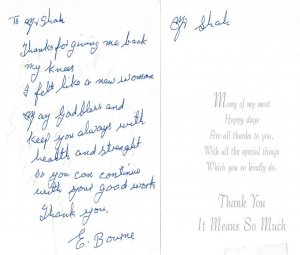 To Mr Shah
Thanks for giving me back
my knees
I felt like a new woman
May God bless and
keep you always with
health and strenght
so you can continue
with your good work
Thank you.
E. Bourne
Mr Shah
Many of my most
Happy days
Are all thanks to you,
With all the special things
Which you so kindly do.
Thank You
It Means So Much